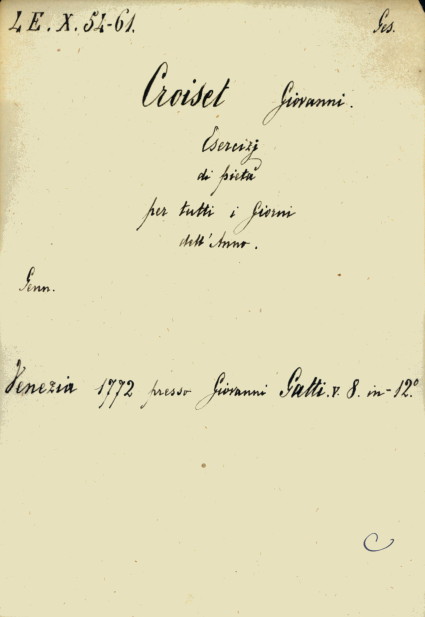 L E. X. 54-61. Ges.
Croiset Giovanni.
Esercizj
di pietà
per tutti i Giorni
dell'Anno.
Genn.
Venezia 1772 presso Giovanni Gatti. v. 8. in-12.º
C